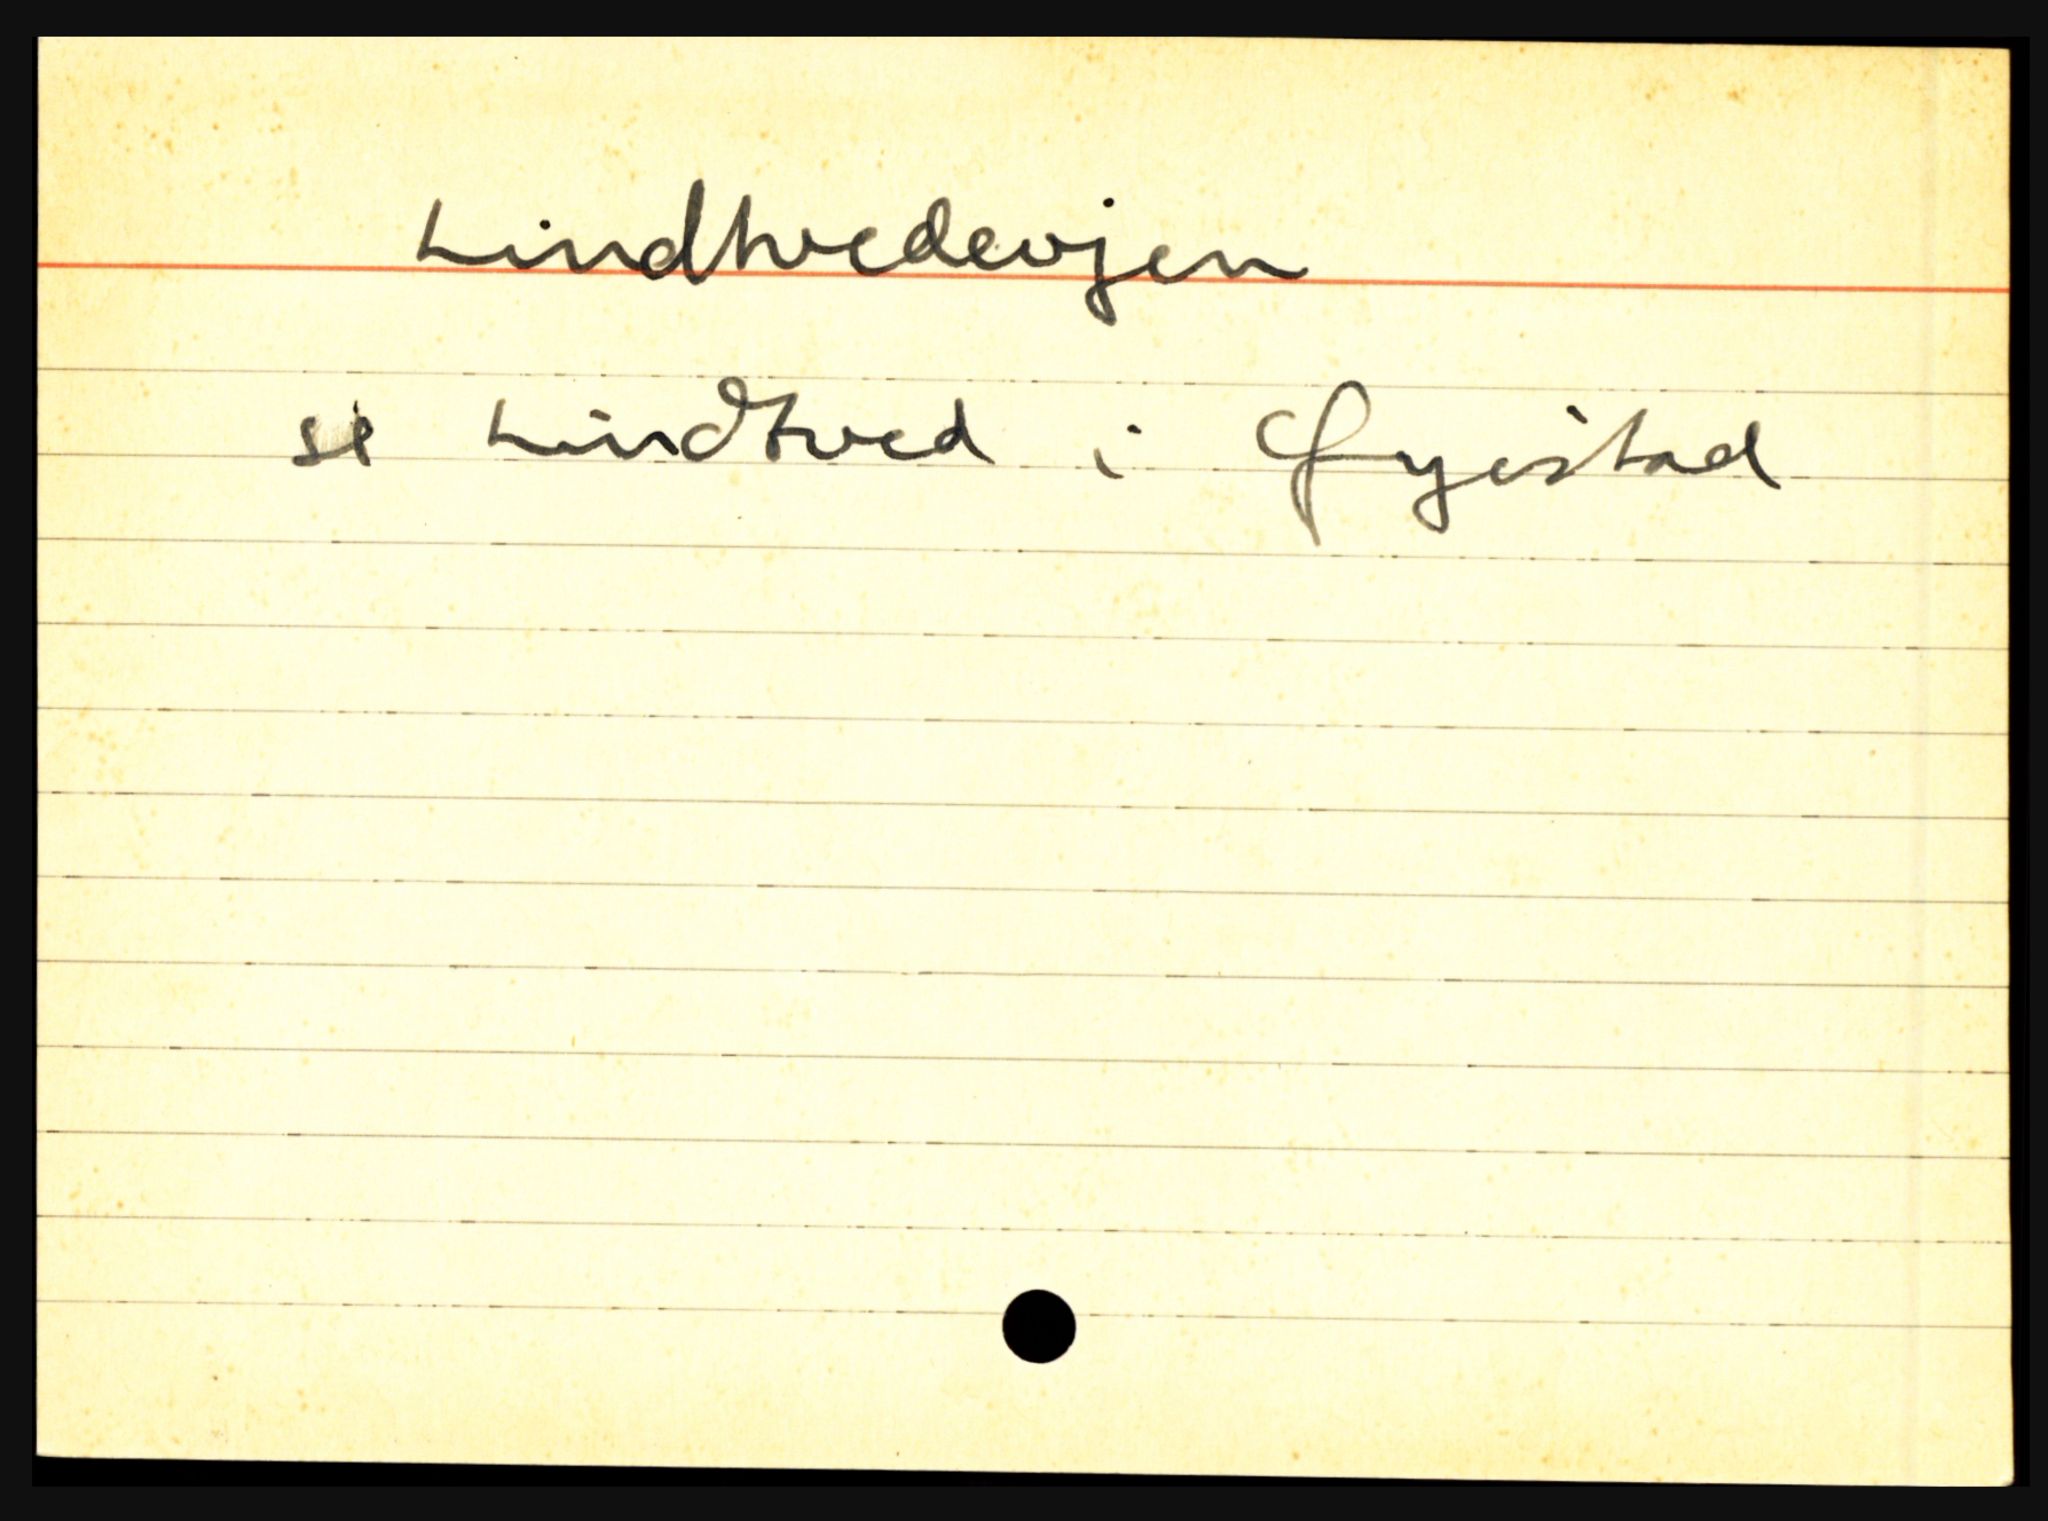 Lindtvedevjen
se Lindtved i Øyestad